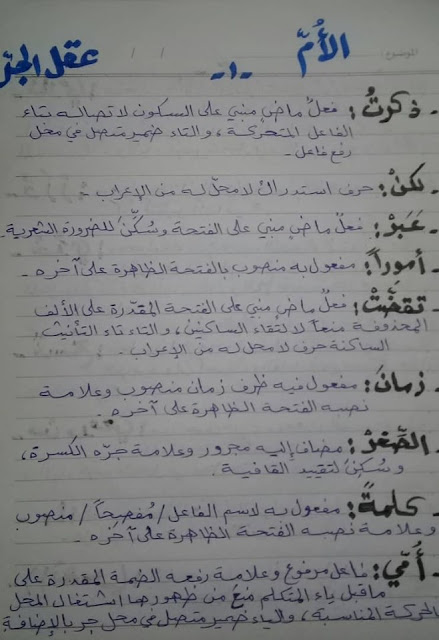 الموضوع:
الأُمّ -١- عقل الجرّ
- ذكرتُ: فعلٌ ماضٍ مبني على السكون لاتصاله بتاء
الفاعل المتحرّكة، والتاء ضمير متصل في محل
رفع فاعل.
- لكنْ: حرف استدراك لا محلّ له من الإعراب.
- عَبَرْ: فعلٌ ماضٍ مبني على الفتحة وسُكِّنَ للضرورة الشعرية.
- أموراً: مفعول به منصوب بالفتحة الظاهرة على آخره.
- تقضّتْ: فعلٌ ماضٍ مبني على الفتحة المقدّرة على الألف
المحذوفة منعاً لالتقاء الساكنين، والتاء تاء التأنيث
الساكنة حرف لا محل له من الإعراب.
- زمانَ: مفعول فيه ظرف زمان منصوب وعلامة
نصبه الفتحة الظاهرة على آخره.
- الصّغرْ: مضاف إليه مجرور وعلامة جرّه الكسرة،
وسُكِّنَ لتقييد القافية.
- كلمةً: مفعول به لاسم الفاعل /مُفصِحاً/ منصوب
وعلامة نصبه الفتحة الظاهرة على آخره.
- أمّي: فاعل مرفوع وعلامة رفعه الضمة المقدرة على
ماقبل ياء المتكلم منع من ظهورها اشتغال المحل
الحركة المناسبة، والياء ضمير متصل في محل جر بالإضافة